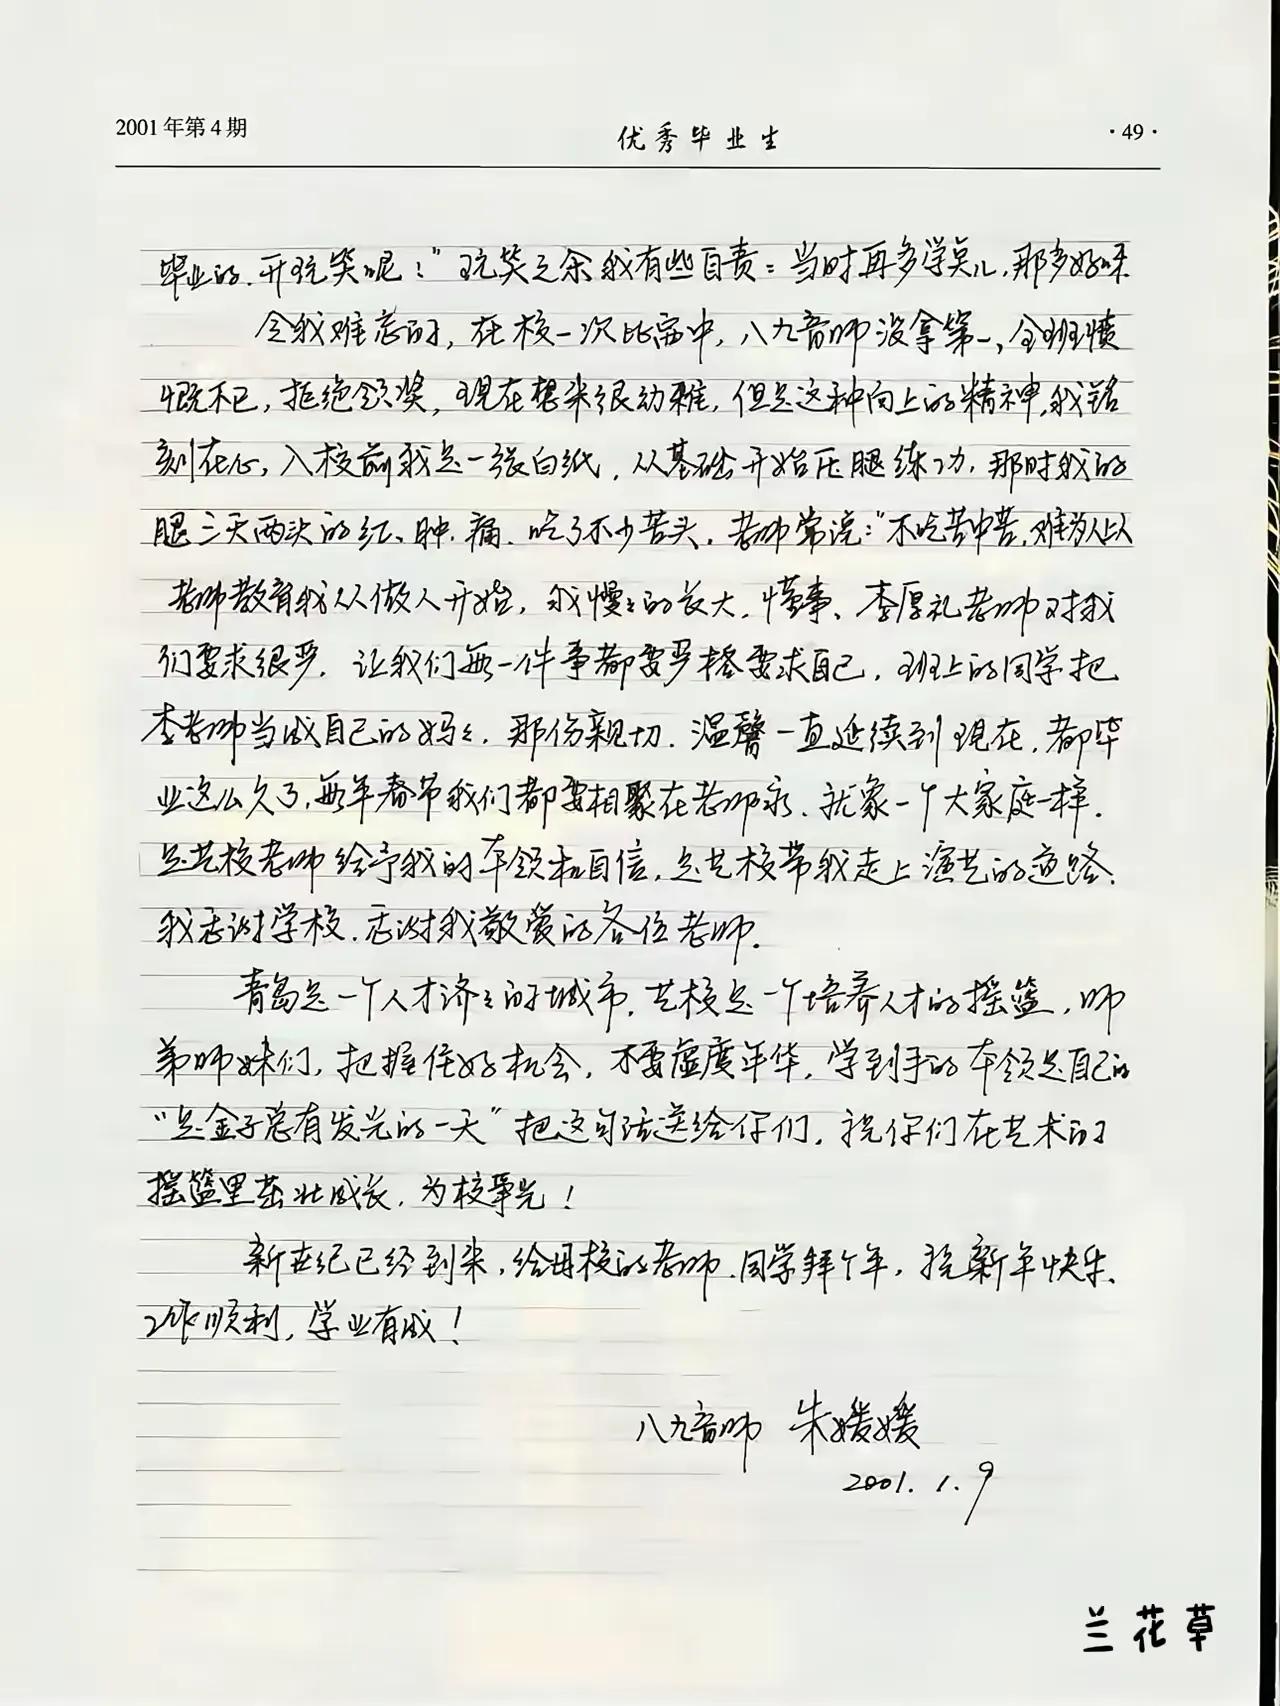 2001年第4期 优秀毕业生 ·49·
毕业的、开玩笑呢!"玩笑之余我有些自责:当时再多学点儿,那多好呀
令我难忘的,在校一次比赛中,八九音师没拿第一,全班愤
慨不已,拒绝领奖,现在想来很幼稚,但是这种向上的精神,我铭
刻在心,入校前我是一张白纸,从基础开始压腿练功,那时我的
腿三天两头的红、肿、痛、吃了不少苦头,老师常说:"不吃苦中苦,难为人上人
老师教育我从做人开始,我慢慢的长大,懂事、李厚礼老师对我
们要求很严,让我们每一件事都要严格要求自己,班上的同学把
李老师当成自己的妈妈,那份亲切、温馨一直延续到现在,都毕
业这么久了,每年春节我们都要相聚在老师家、就象一个大家庭一样.
是艺校老师给予我的本领和自信,是艺校带我走上演艺的道路.
我感谢学校、感谢我敬爱的各位老师.
青岛是一个人才济济的城市,艺校是一个培养人才的摇篮,师
弟师妹们,把握住好机会,不要虚度年华,学到手的本领是自己的
"是金子总有发光的一天"把这句话送给你们,祝你们在艺术的
摇篮里茁壮成长,为校争光!
新世纪已经到来,给母校的老师、同学拜个年,祝新年快乐、
工作顺利,学业有成!
八九音师 朱媛媛
2001.1.9
兰花草